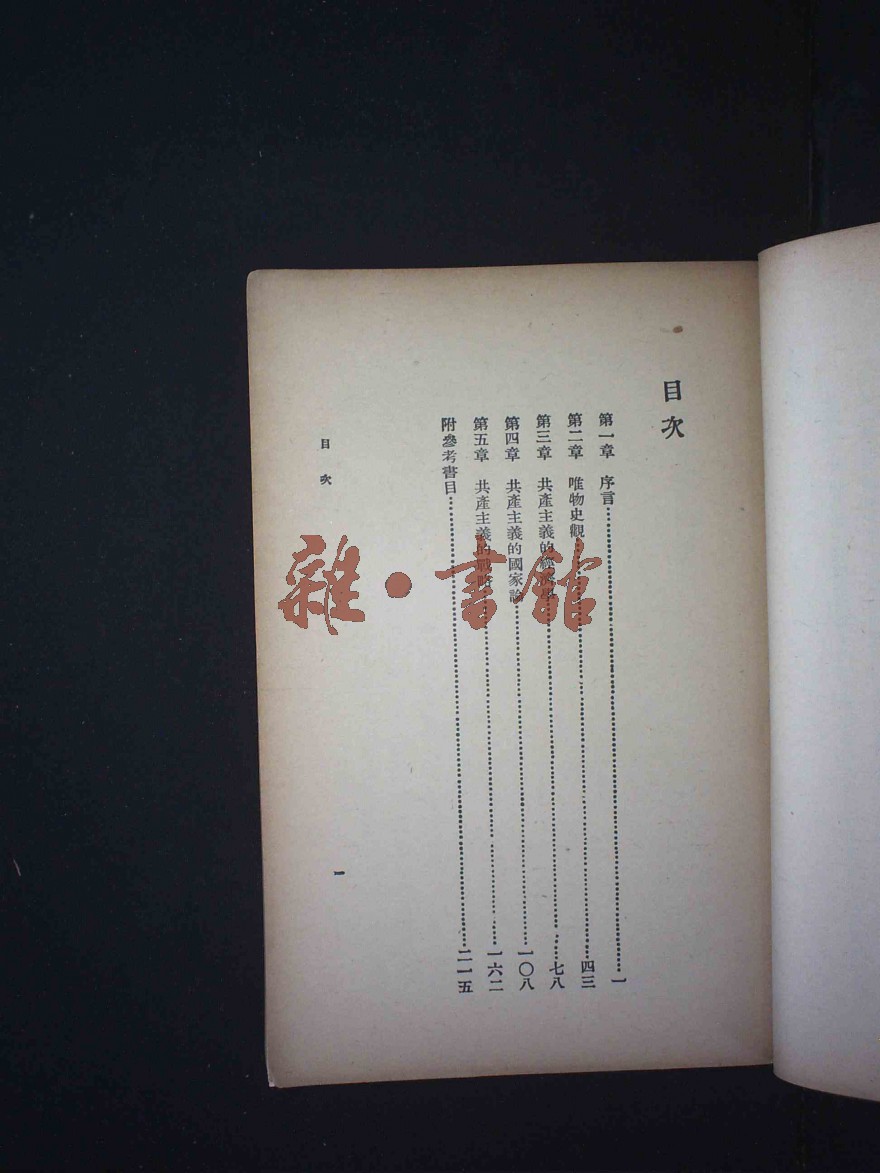 目次
第一章 序言……………………一
第二章 唯物史觀……………………四三
第三章 共產主義的經濟學……………………七八
第四章 共產主義的國家論……………………一〇八
第五章 共產主義的戰略……………………一六二
附參考書目……………………二一五
目次
一
雜·書館